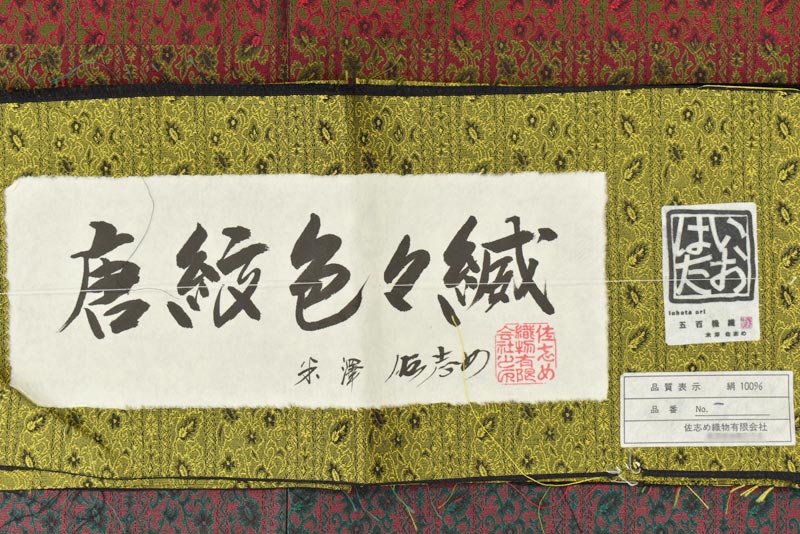 唐紋色々縅
米澤 佐志め
佐志め
織物有限
会社之印
いお
はた
iohata ori
五百機織
米澤 佐志め
品質表示 絹100%
品番 No.
佐志め織物有限会社